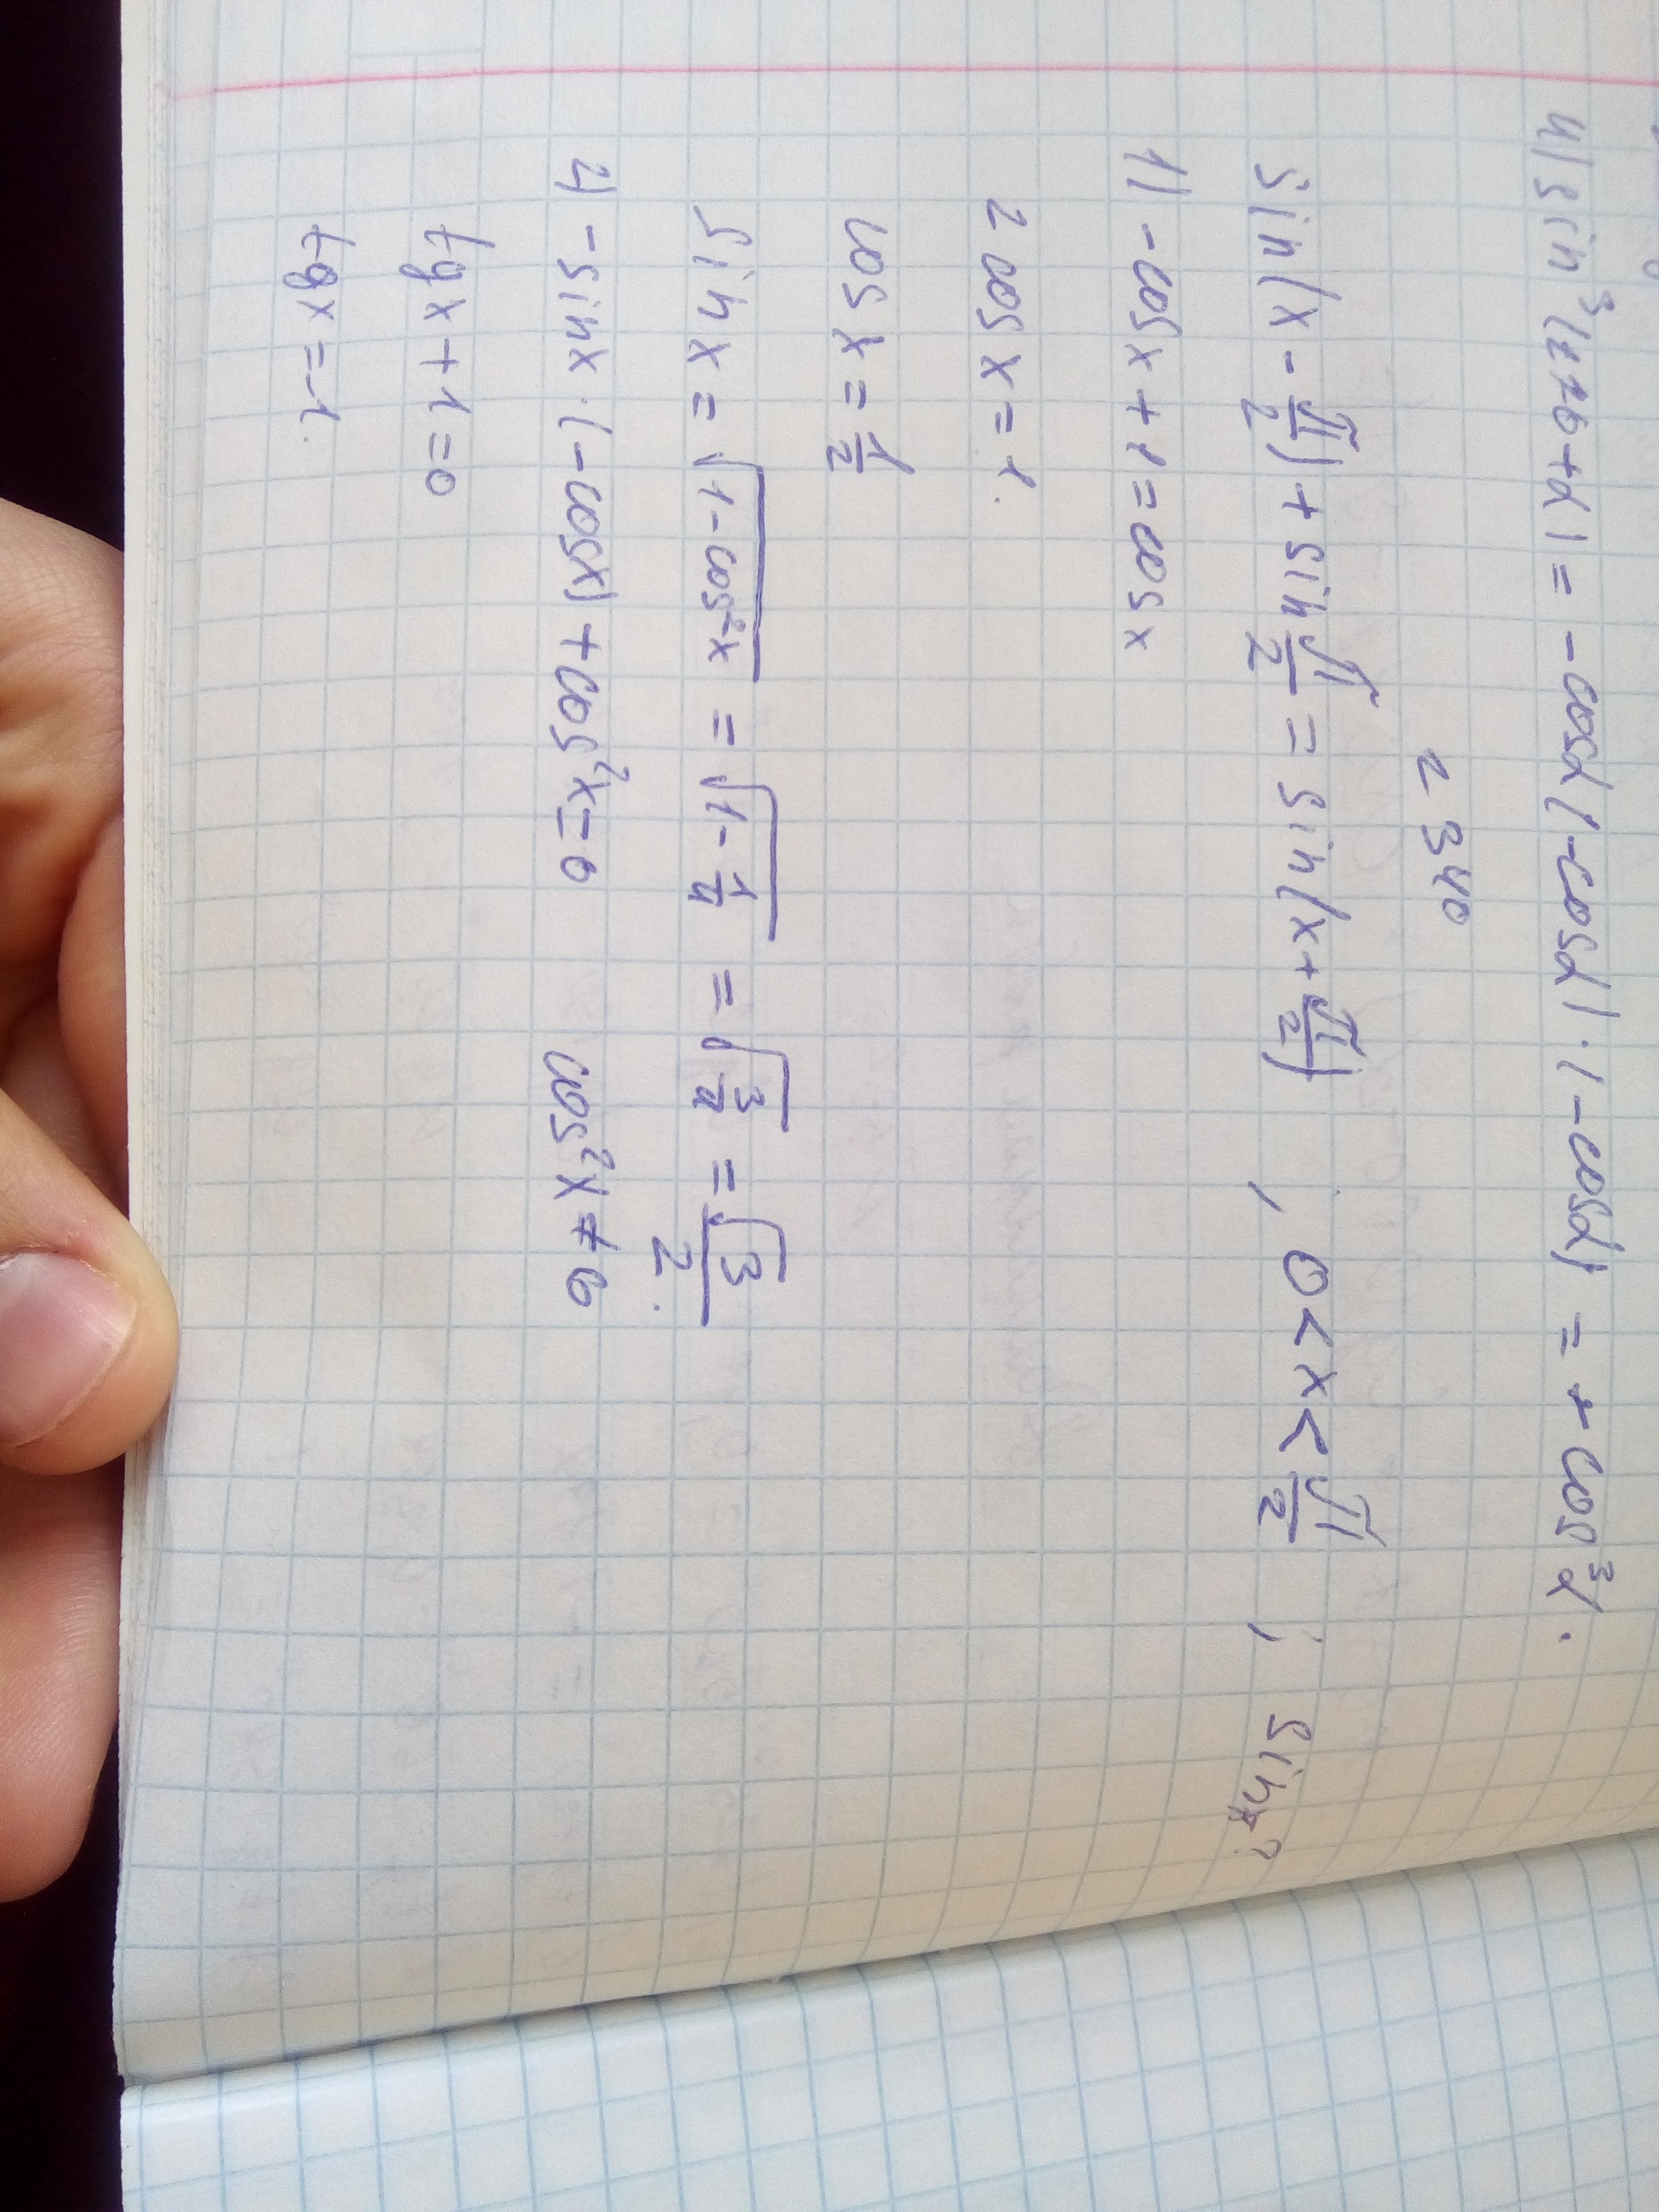 4) sin³(270+α) = -cosα(-cosα)·(-cosα) = + cos³α.
2 340
sin(x - π/2) + sin π/2 = sin(x + π/2) , 0 < x < π/2 ; sin x?
1) -cos x + 1 = cos x
2 cos x = 1.
cos x = 1/2
sin x = √(1-cos²x) = √(1-1/4) = √(3/4) = √3/2.
4) -sin x · (-cos x) + cos²x = 0 cos²x ≠ 0
tg x + 1 = 0
tg x = -1.